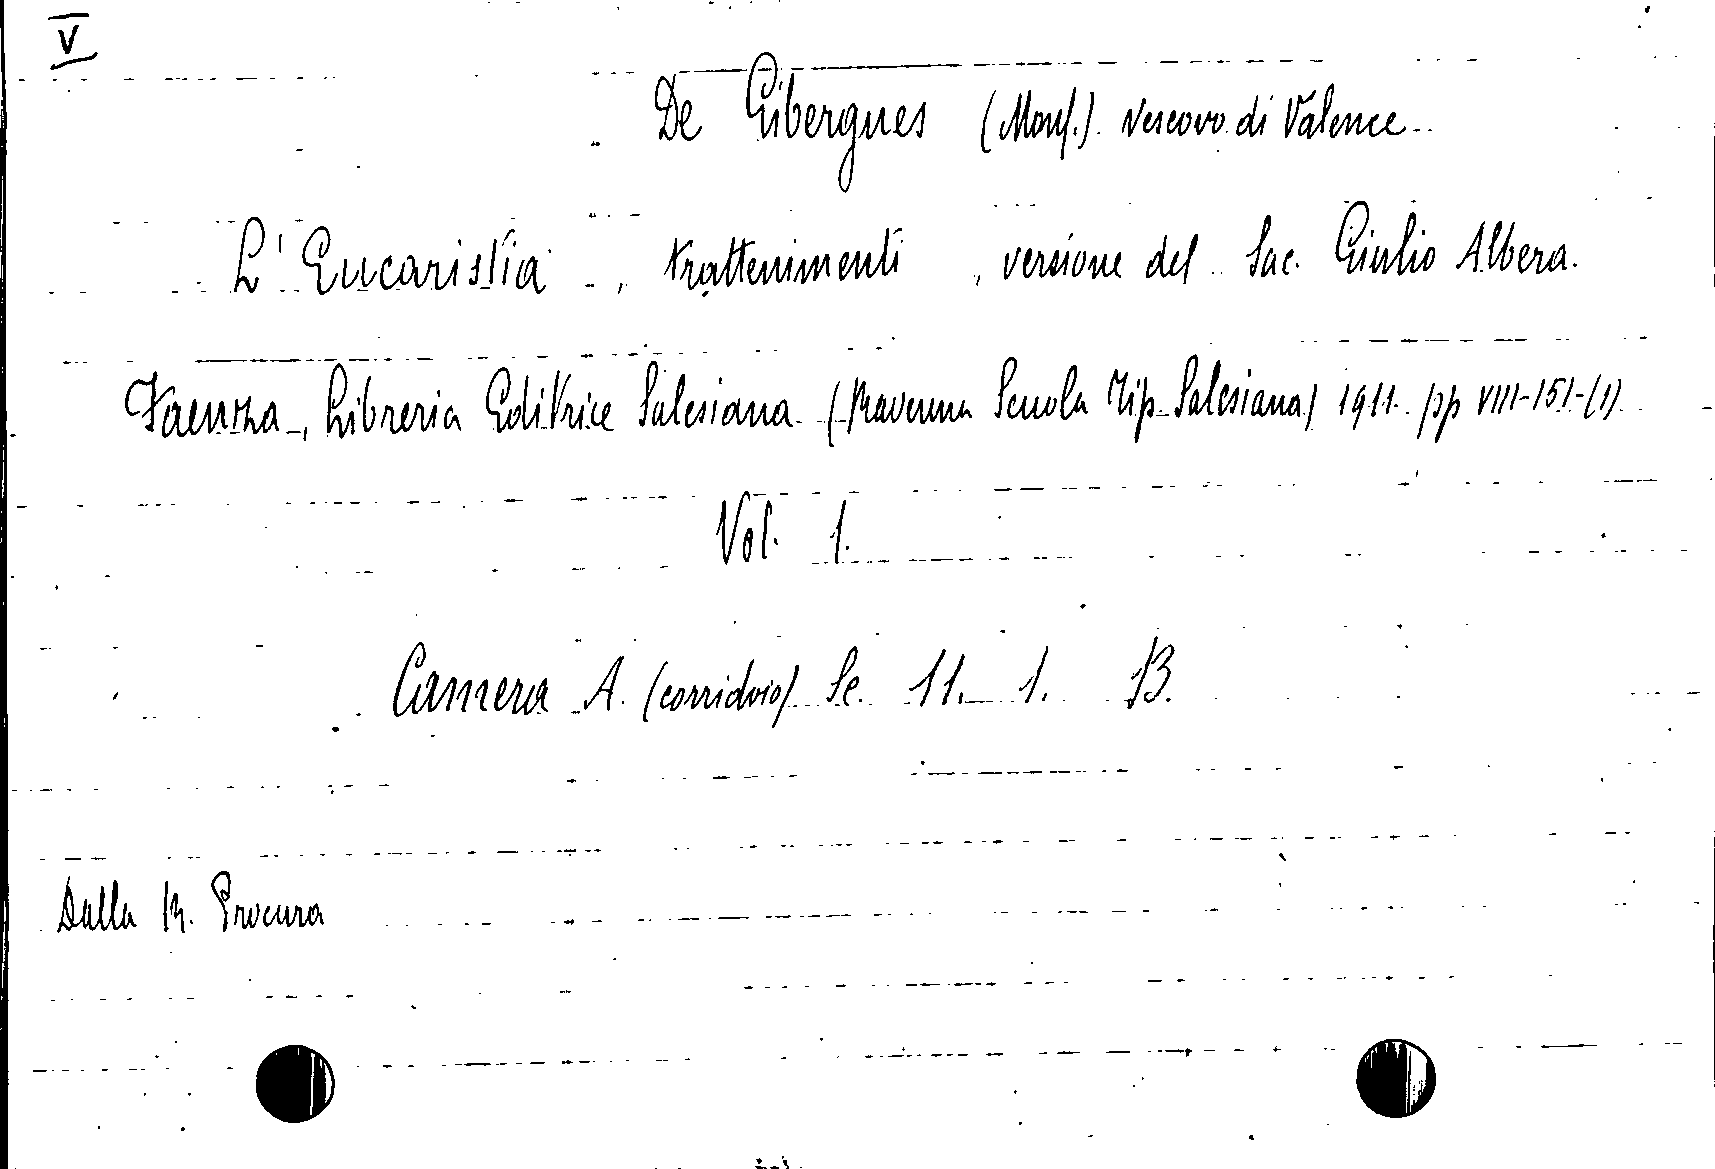 V
De Gibergues (Mons.) Vescovo di Valence
L'Eucaristia, trattenimenti, versione del Sac. Giulio Albera.
Faenza, Libreria Editrice Salesiana (Ravenna Scuola Tip. Salesiana) 1911. pp VIII-151-(1)
Vol. 1.
Camera A. (corridoio) Sc. 11. 1. B.
Dalla R. Procura